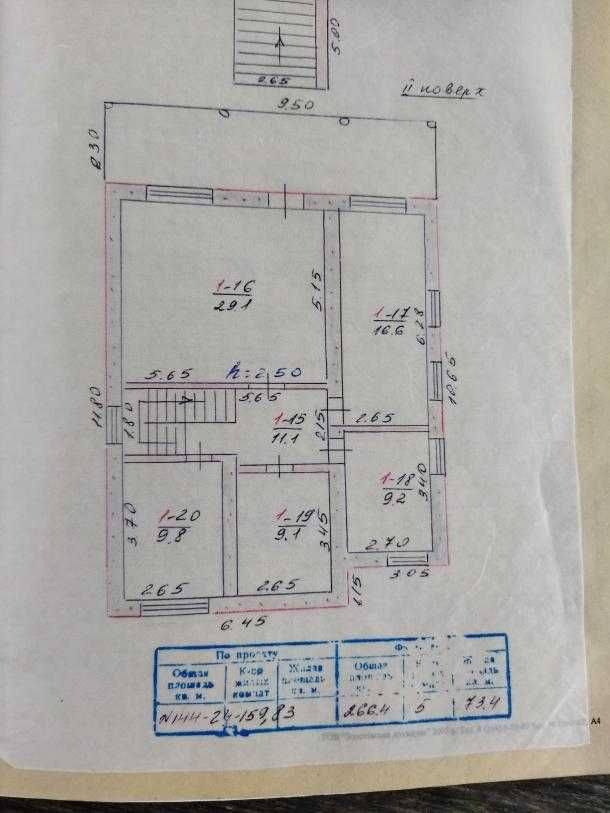 5.00
2.65
II поверх
9.50
2.30
1-16
29.1
5.15
1-17
16.6
6.28
5.65
h=2.50
5.65
2.65
10.65
11.80
1.80
1-15
11.1
2.15
1-18
9.2
3.40
1-20
9.8
3.70
1-19
9.1
3.45
2.70
2.65
2.65
3.05
1.15
6.45
По проекту
Общая площадь кв. м.
К-во жилых комнат
Жилая площадь кв. м.
Общая
№144-24-159,83
266.4
5
73.4
A4